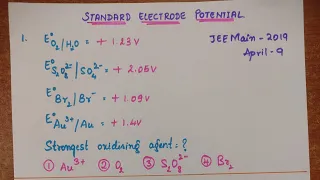 STANDARD ELECTRODE POTENTIAL
1. E° O₂/H₂O = + 1.23V
JEE Main - 2019
April - 9
E° S₂O₈²⁻/SO₄²⁻ = + 2.05V
E° Br₂/Br⁻ = + 1.09V
E° Au³⁺/Au = + 1.4V
Strongest oxidising agent: ?
① Au³⁺ ② O₂ ③ S₂O₈²⁻ ④ Br₂